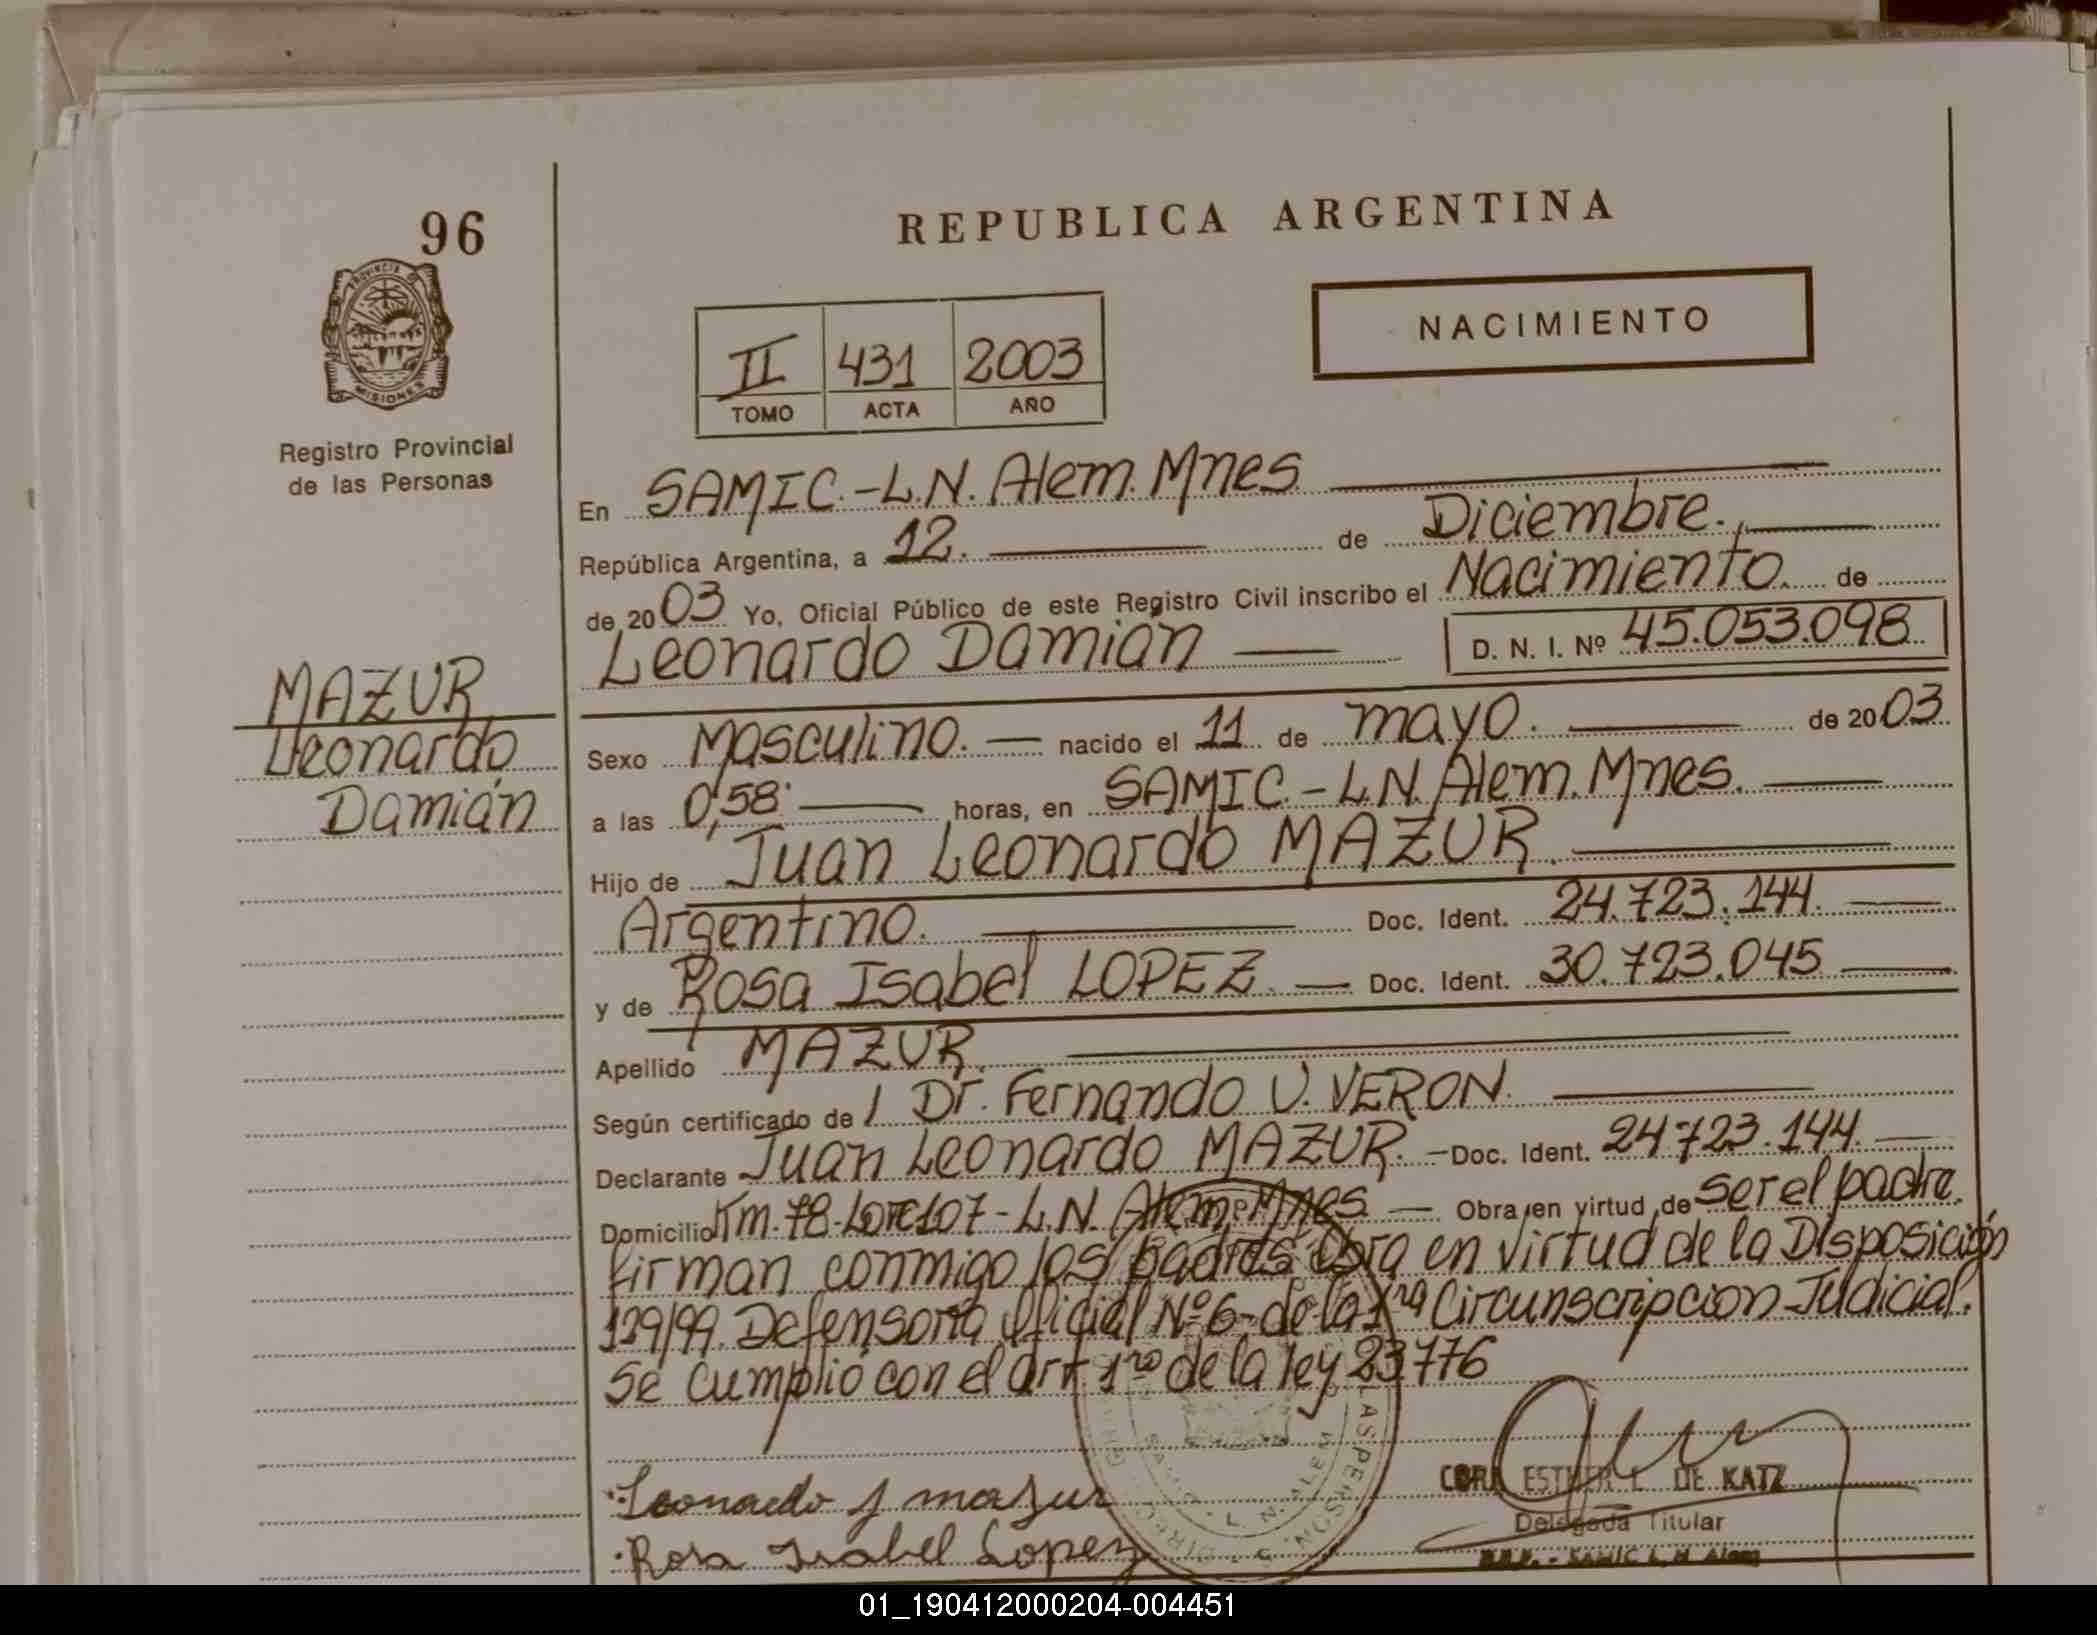 96
REPUBLICA ARGENTINA
PROVINCIA DE
MISIONES
NACIMIENTO
II 431 2003
TOMO ACTA AÑO
Registro Provincial
de las Personas
En SAMIC.-L.N. Alem. Mnes
República Argentina, a 12. de Diciembre.
de 2003 Yo, Oficial Público de este Registro Civil inscribo el Nacimiento de
Leonardo Damián D. N. I. Nº 45.053.098
MAZUR
Leonardo
Damián
Sexo Masculino. nacido el 11 de mayo. de 2003
a las 0,58' horas, en SAMIC.-L.N. Alem. Mnes.
Hijo de Juan Leonardo MAZUR.
Argentino. Doc. Ident. 24.723.144.
y de Rosa Isabel LOPEZ. Doc. Ident. 30.723.045
Apellido MAZUR.
Según certificado de / Dr. Fernando U. VERON.
Declarante Juan Leonardo MAZUR. Doc. Ident. 24723.144.
Domicilio Km. 78-Lote 107-L.N. Alem. Mnes. Obra en virtud de ser el padre.
firman conmigo los padres Obra en virtud de la Disposición
129/99. Defensoria Oficial Nº 6-de la 1ra Circunscripcion Judicial.
Se cumplió con el art 1ro de la ley 23776
Leonardo J mazur
Rosa Isabel Lopez
ESTHER L. DE KATZ
Delegada Titular
SAMIC L. N. Alem
LAS PERSONAS
SAMIC - L. N. ALEM
01_190412000204-004451